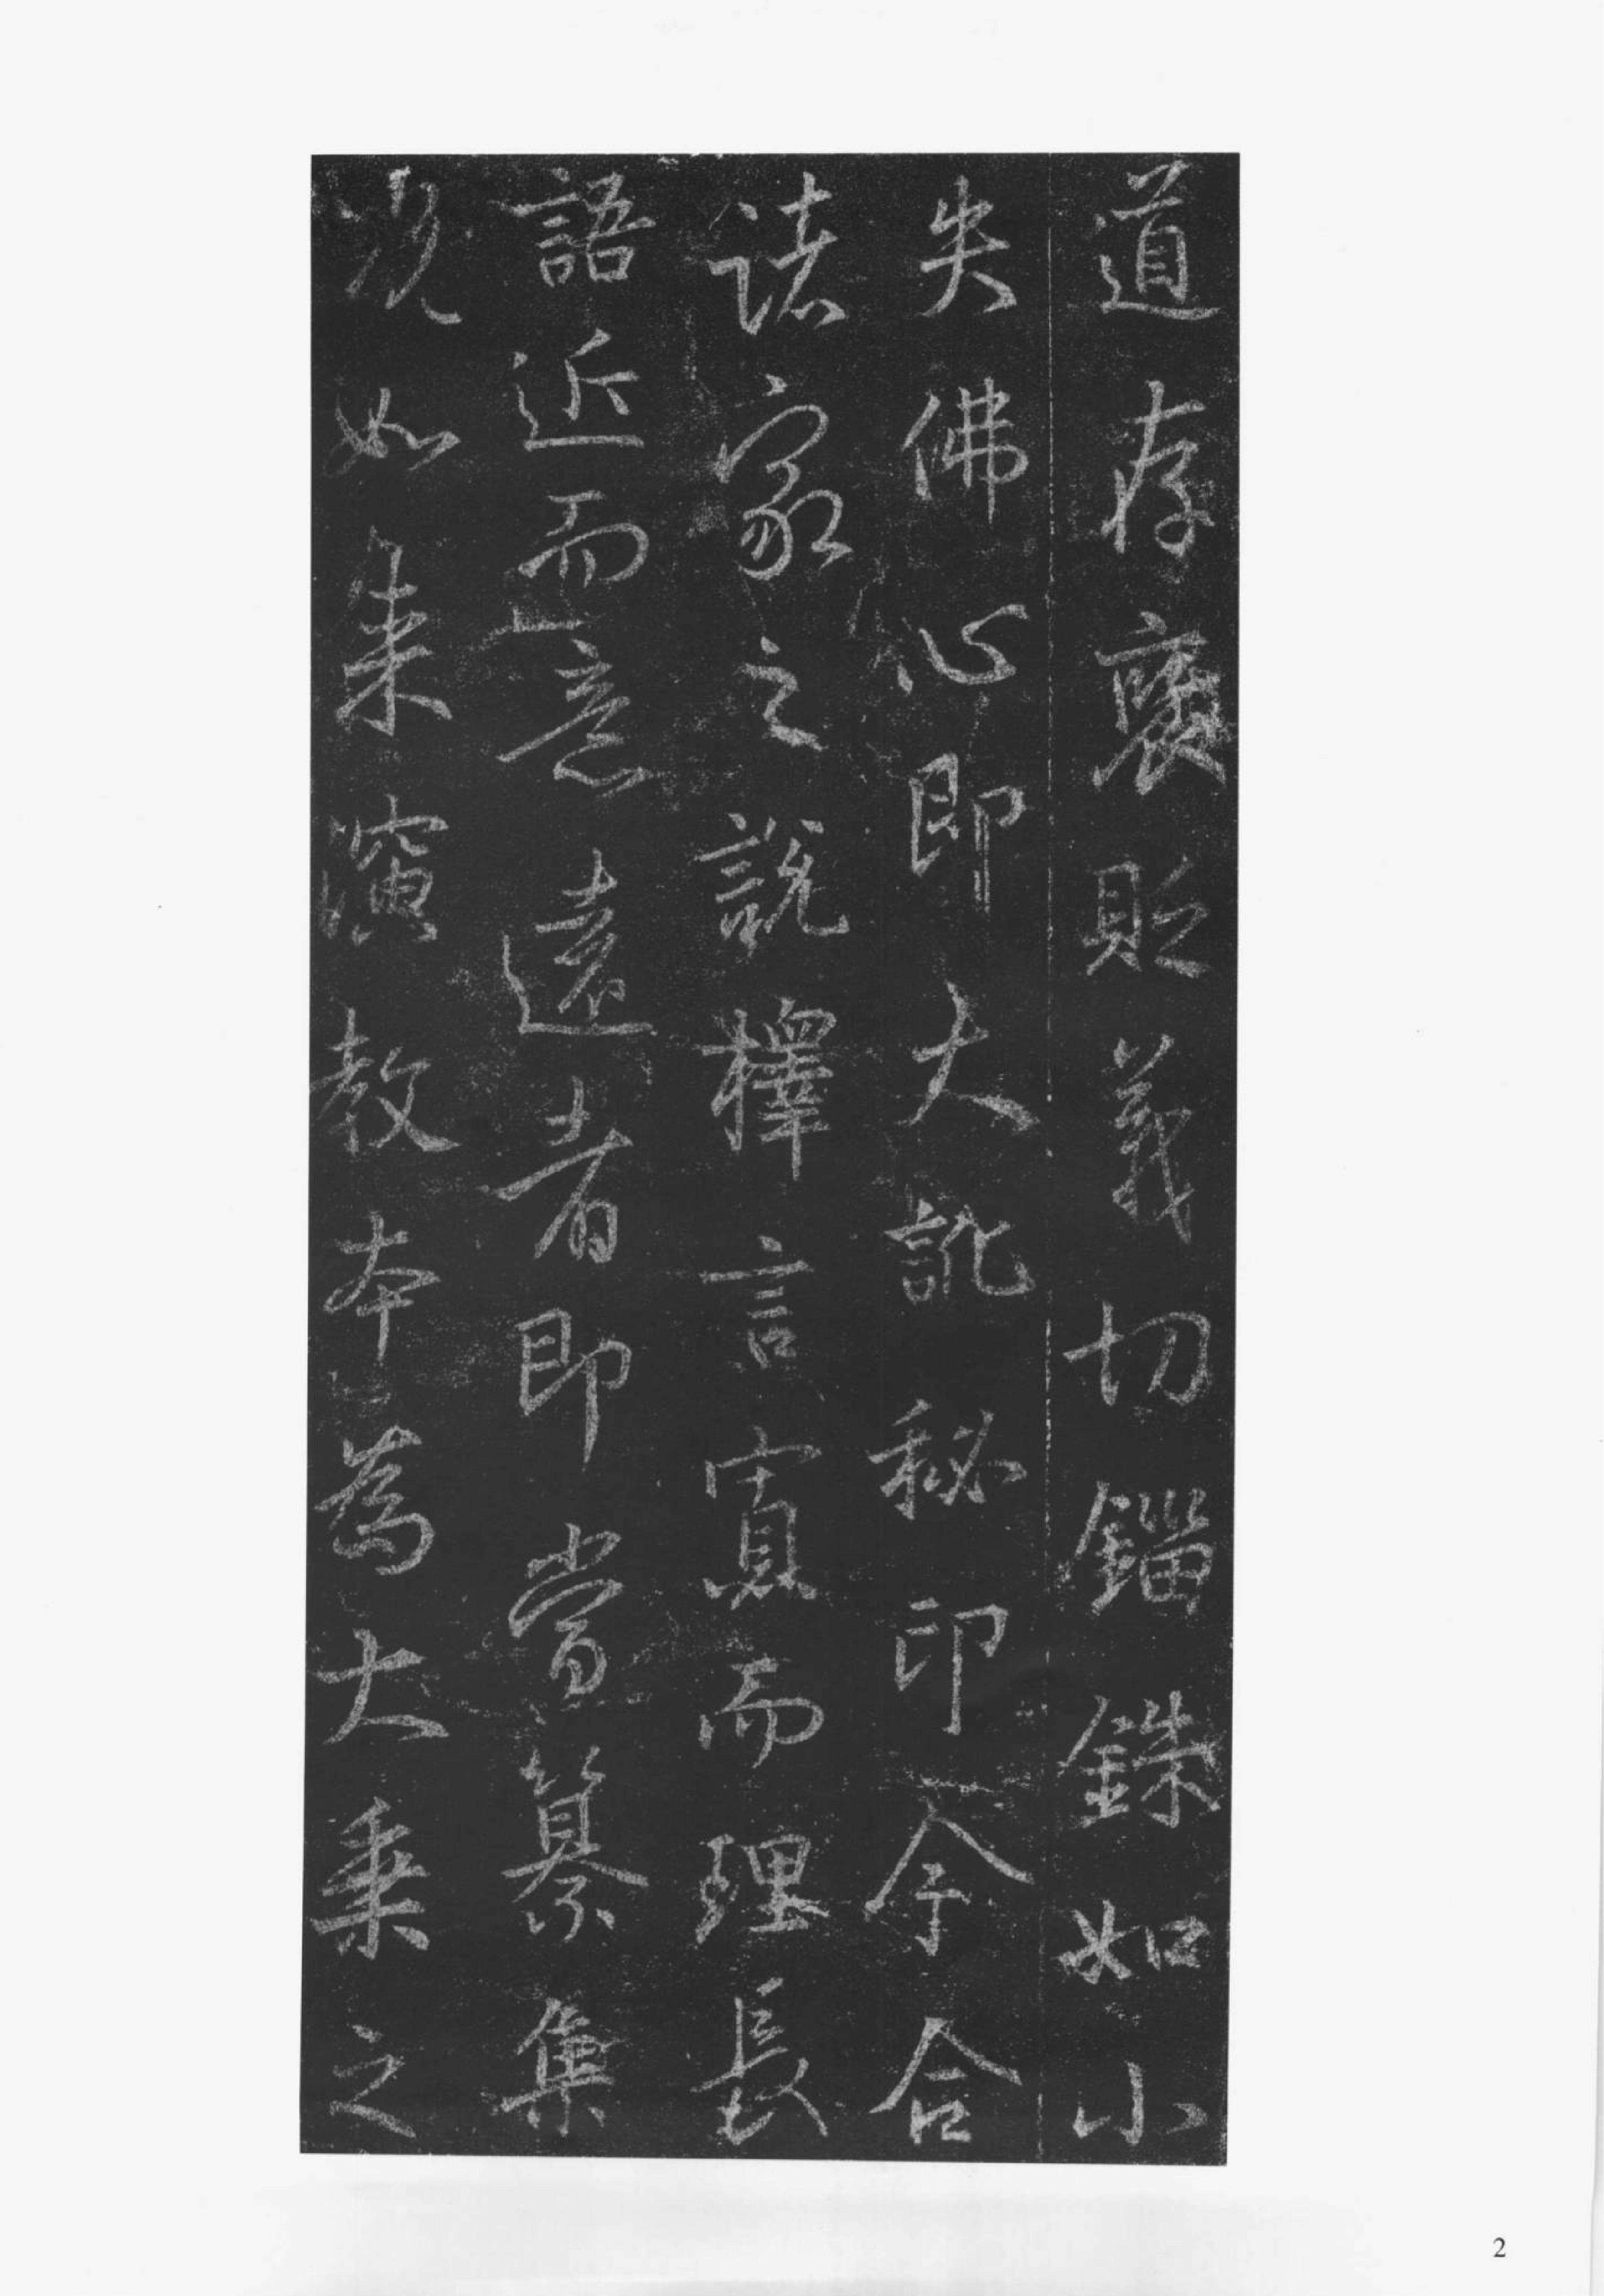 道存褒貶義切錙銖如小
失佛心即大訛秘印今合
諸家之說擇言寡而理長
語近而意遠者即當纂集
況如来演教本為大乗之
2